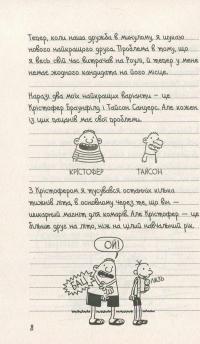 Тепер, коли наша дружба в минулому, я шукаю
нового найкращого друга. Проблема в тому, що
я весь свій час витрачав на Роулі, й тепер у мене
немає жодного кандидата на його місце.
Наразі два моїх найкращих варіанти – це
Крістофер Браунфілд і Тайсон Сандерс. Але кожен
із цих пацанів має свої проблеми.
КРІСТОФЕР
ТАЙСОН
З Крістофером я тусувався останніх кілька
тижнів літа, в основному через те, що він –
шикарний магніт для комарів. Але Крістофер – це
більше друг на літо, ніж на цілий навчальний рік.
ОЙ!
БАЦ!
ЛЯЗЬ
8